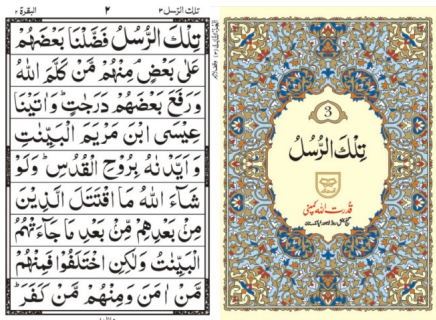 البقرة ٢
٢
تلك الرسل ٣
تِلْكَ الرُّسُلُ فَضَّلْنَا بَعْضَهُمْ
عَلٰی بَعْضٍ ۘ مِنْهُمْ مَّنْ كَلَّمَ اللّٰهُ
وَرَفَعَ بَعْضَهُمْ دَرَجٰتٍ ؕ وَاٰتَيْنَا
عِيْسَی ابْنَ مَرْيَمَ الْبَيِّنٰتِ
وَاَيَّدْنٰهُ بِرُوْحِ الْقُدُسِ ؕ وَلَوْ
شَآءَ اللّٰهُ مَا اقْتَتَلَ الَّذِيْنَ
مِنْۢ بَعْدِهِمْ مِّنْۢ بَعْدِ مَا جَآءَتْهُمُ
الْبَيِّنٰتُ وَلٰكِنِ اخْتَلَفُوْا فَمِنْهُمْ
مَّنْ اٰمَنَ وَمِنْهُمْ مَّنْ كَفَرَ ؕ
3
تِلْكَ الرُّسُلُ
قدرت اللہ کمپنی